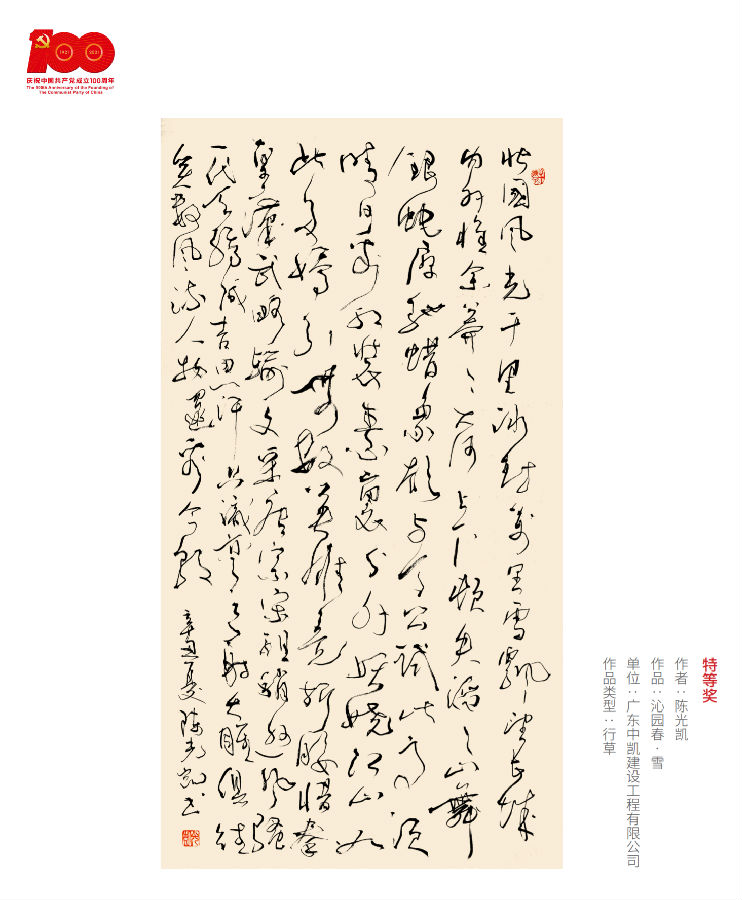 100
1921 2021
庆祝中国共产党成立100周年
The 100th Anniversary of the Founding of
The Communist Party of China
特等奖
作者：陈光凯
作品：沁园春·雪
单位：广东中凯建设工程有限公司
作品类型：行草
北國风光千里冰封万里雪飘望长城
内外惟余莽々大河上下顿失滔々山舞
銀蛇原驰蜡象欲与天公試比高须
晴日看红装素裹分外妖娆江山如
此多嬌引無数英雄竞折腰惜秦
皇漢武略輸文采唐宗宋祖稍逊风骚
一代天骄成吉思汗只識弯弓射大雕俱往
矣数风流人物還看今朝
辛丑夏陈光凯书